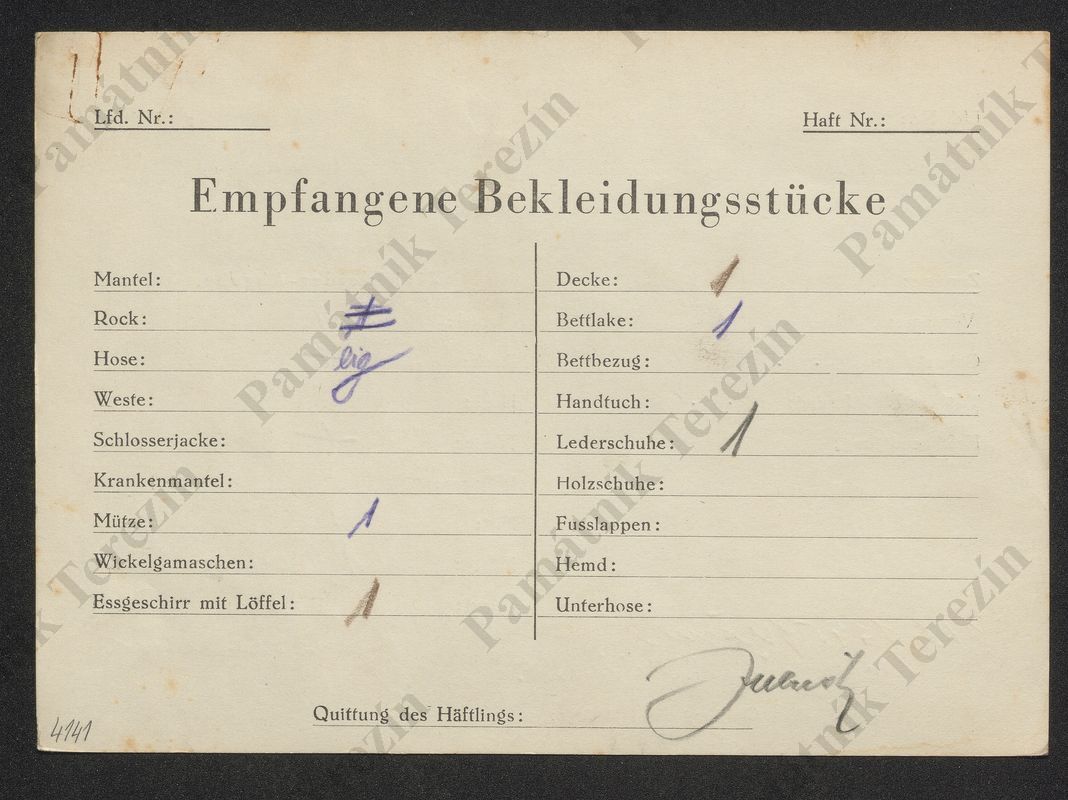 Lfd. Nr.:
Haft Nr.:
Empfangene Bekleidungsstücke
Mantel:
Rock:
Hose: eig
Weste:
Schlosserjacke:
Krankenmantel:
Mütze: 1
Wickelgamaschen:
Essgeschirr mit Löffel: 1
Decke: 1
Bettlake: 1
Bettbezug:
Handtuch:
Lederschuhe: 1
Holzschuhe:
Fusslappen:
Hemd:
Unterhose:
Quittung des Häftlings:
4141
Památník Terezín